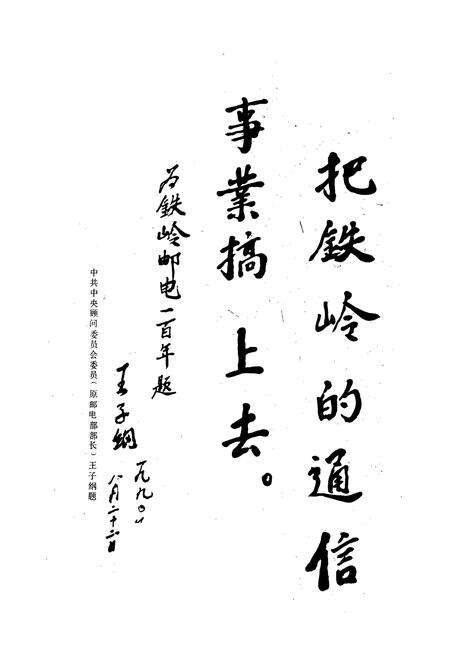 把鉄岭的通信
事業搞上去。
为鉄岭邮电一百年题
王子纲
一九九〇、
八月二十二日
中共中央顾问委员会委员(原邮电部部长)王子纲题